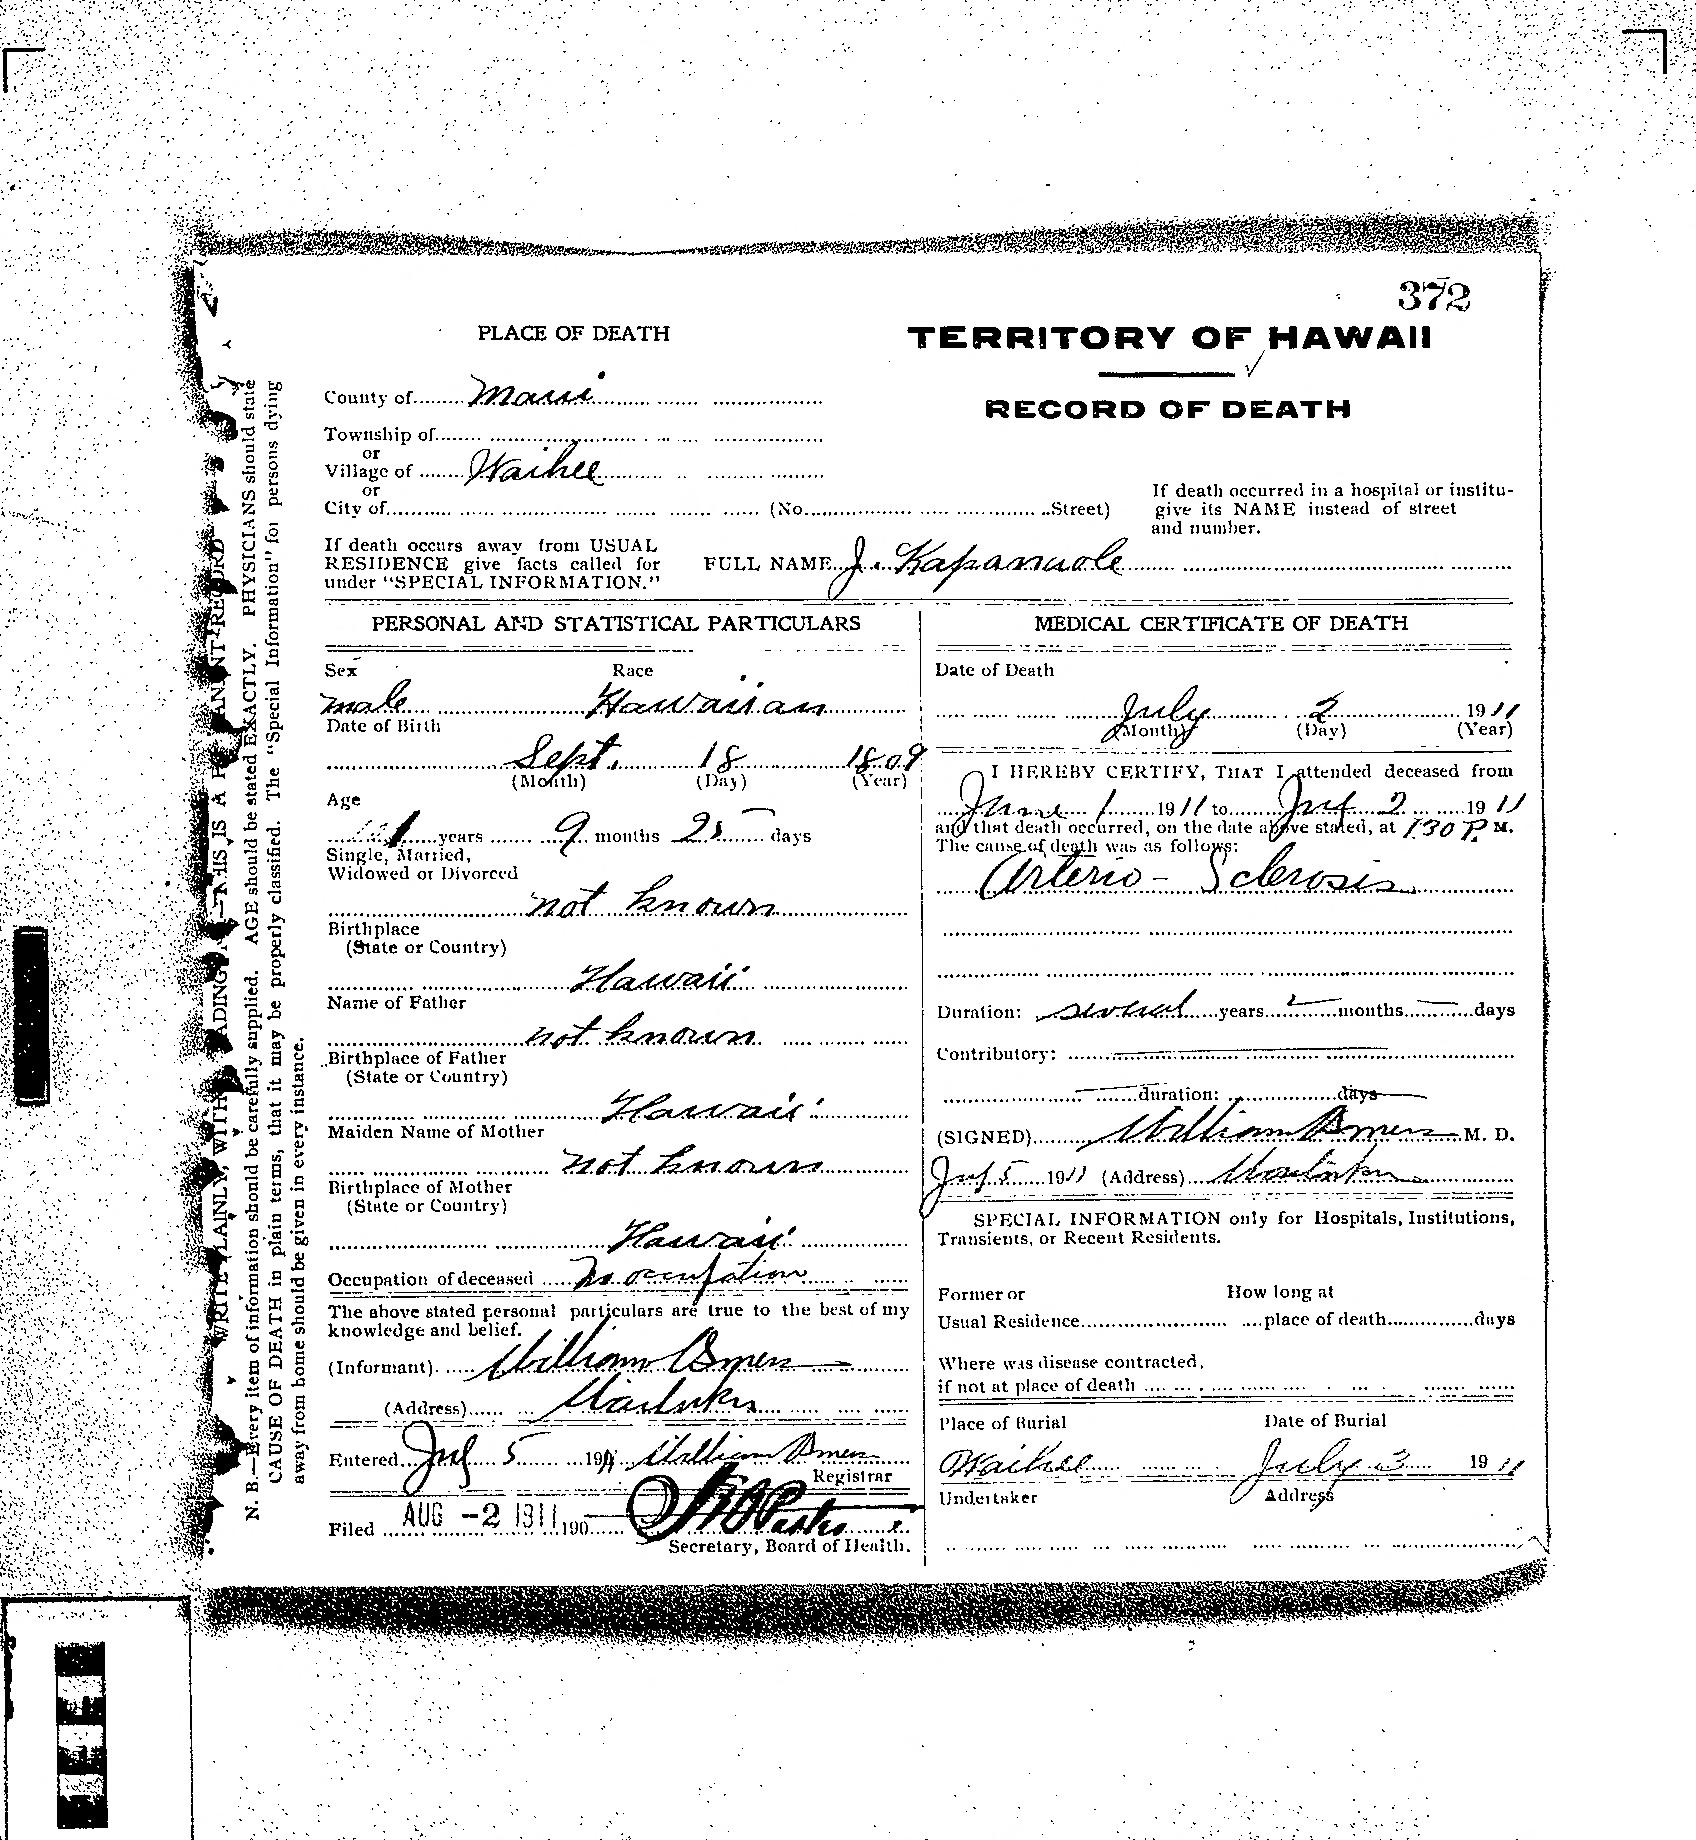 372
PLACE OF DEATH
TERRITORY OF HAWAII
RECORD OF DEATH
County of Maui
Township of
or
Village of Waihee
or
City of (No. Street)
If death occurred in a hospital or institu-
give its NAME instead of street
and number.
If death occurs away from USUAL
RESIDENCE give facts called for
under "SPECIAL INFORMATION."
FULL NAME J. Kapanuole
PERSONAL AND STATISTICAL PARTICULARS
Sex Race
male Hawaiian
Date of Birth
Sept. 18 1809
(Month) (Day) (Year)
Age
years 9 months 25 days
Single, Married,
Widowed or Divorced
not known
Birthplace
(State or Country)
Hawaii
Name of Father
not known
Birthplace of Father
(State or Country)
Hawaii
Maiden Name of Mother
not known
Birthplace of Mother
(State or Country)
Hawaii
Occupation of deceased No occupation
The above stated personal particulars are true to the best of my
knowledge and belief.
(Informant) William Osmers
(Address) Wailuku
Entered July 5 1911 William Osmers
Registrar
Filed AUG -2 1911 190
Secretary, Board of Health.
MEDICAL CERTIFICATE OF DEATH
Date of Death
July 2 1911
(Month) (Day) (Year)
I HEREBY CERTIFY, THAT I attended deceased from
June 1 1911 to July 2 1911
and that death occurred, on the date above stated, at 1.30 P. M.
The cause of death was as follows:
Arterio-Sclerosis
Duration: several years months days
Contributory:
duration: days
(SIGNED) William Osmers M. D.
July 5 1911 (Address) Wailuku
SPECIAL INFORMATION only for Hospitals, Institutions,
Transients, or Recent Residents.
Former or How long at
Usual Residence place of death days
Where was disease contracted,
if not at place of death
Place of Burial Date of Burial
Waihee July 3 1911
Undertaker Address
WRITE PLAINLY, WITH UNFADING THIS IS A PERMANENT RECORD
N. B.—Every item of information should be carefully supplied. AGE should be stated EXACTLY. PHYSICIANS should state
CAUSE OF DEATH in plain terms, that it may be properly classified. The "Special Information" for persons dying
away from home should be given in every instance.